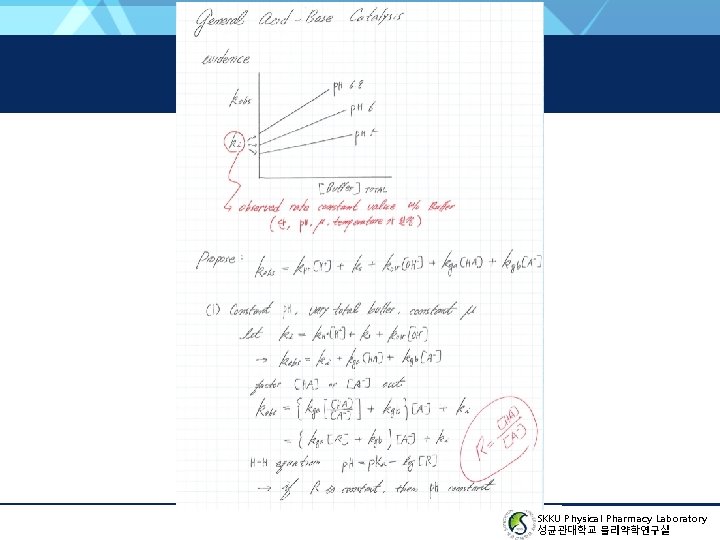 General Acid - Base Catalysis
evidence
kobs
pH 6.2
pH 6
pH 5
ki
[Buffer] TOTAL
observed rate constant value w/o Buffer
(단, pH, μ, temperature 가 일정)
Propose : kobs = kH+[H+] + ks + kOH-[OH-] + kga[HA] + kgb[A-]
(1) Constant pH, vary total buffer, constant μ
let ki = kH+[H+] + ks + kOH-[OH-]
→ kobs = ki + kga[HA] + kgb[A-]
factor [HA] or [A-] out
kobs = {kga[[HA]/[A-]] + kgb}[A-] + ki
= {kga[R] + kgb}[A-] + ki
R = [HA]/[A-]
H-H equation pH = pKa - log[R]
→ if R is constant, then pH constant
SKKU Physical Pharmacy Laboratory
성균관대학교 물리약학연구실